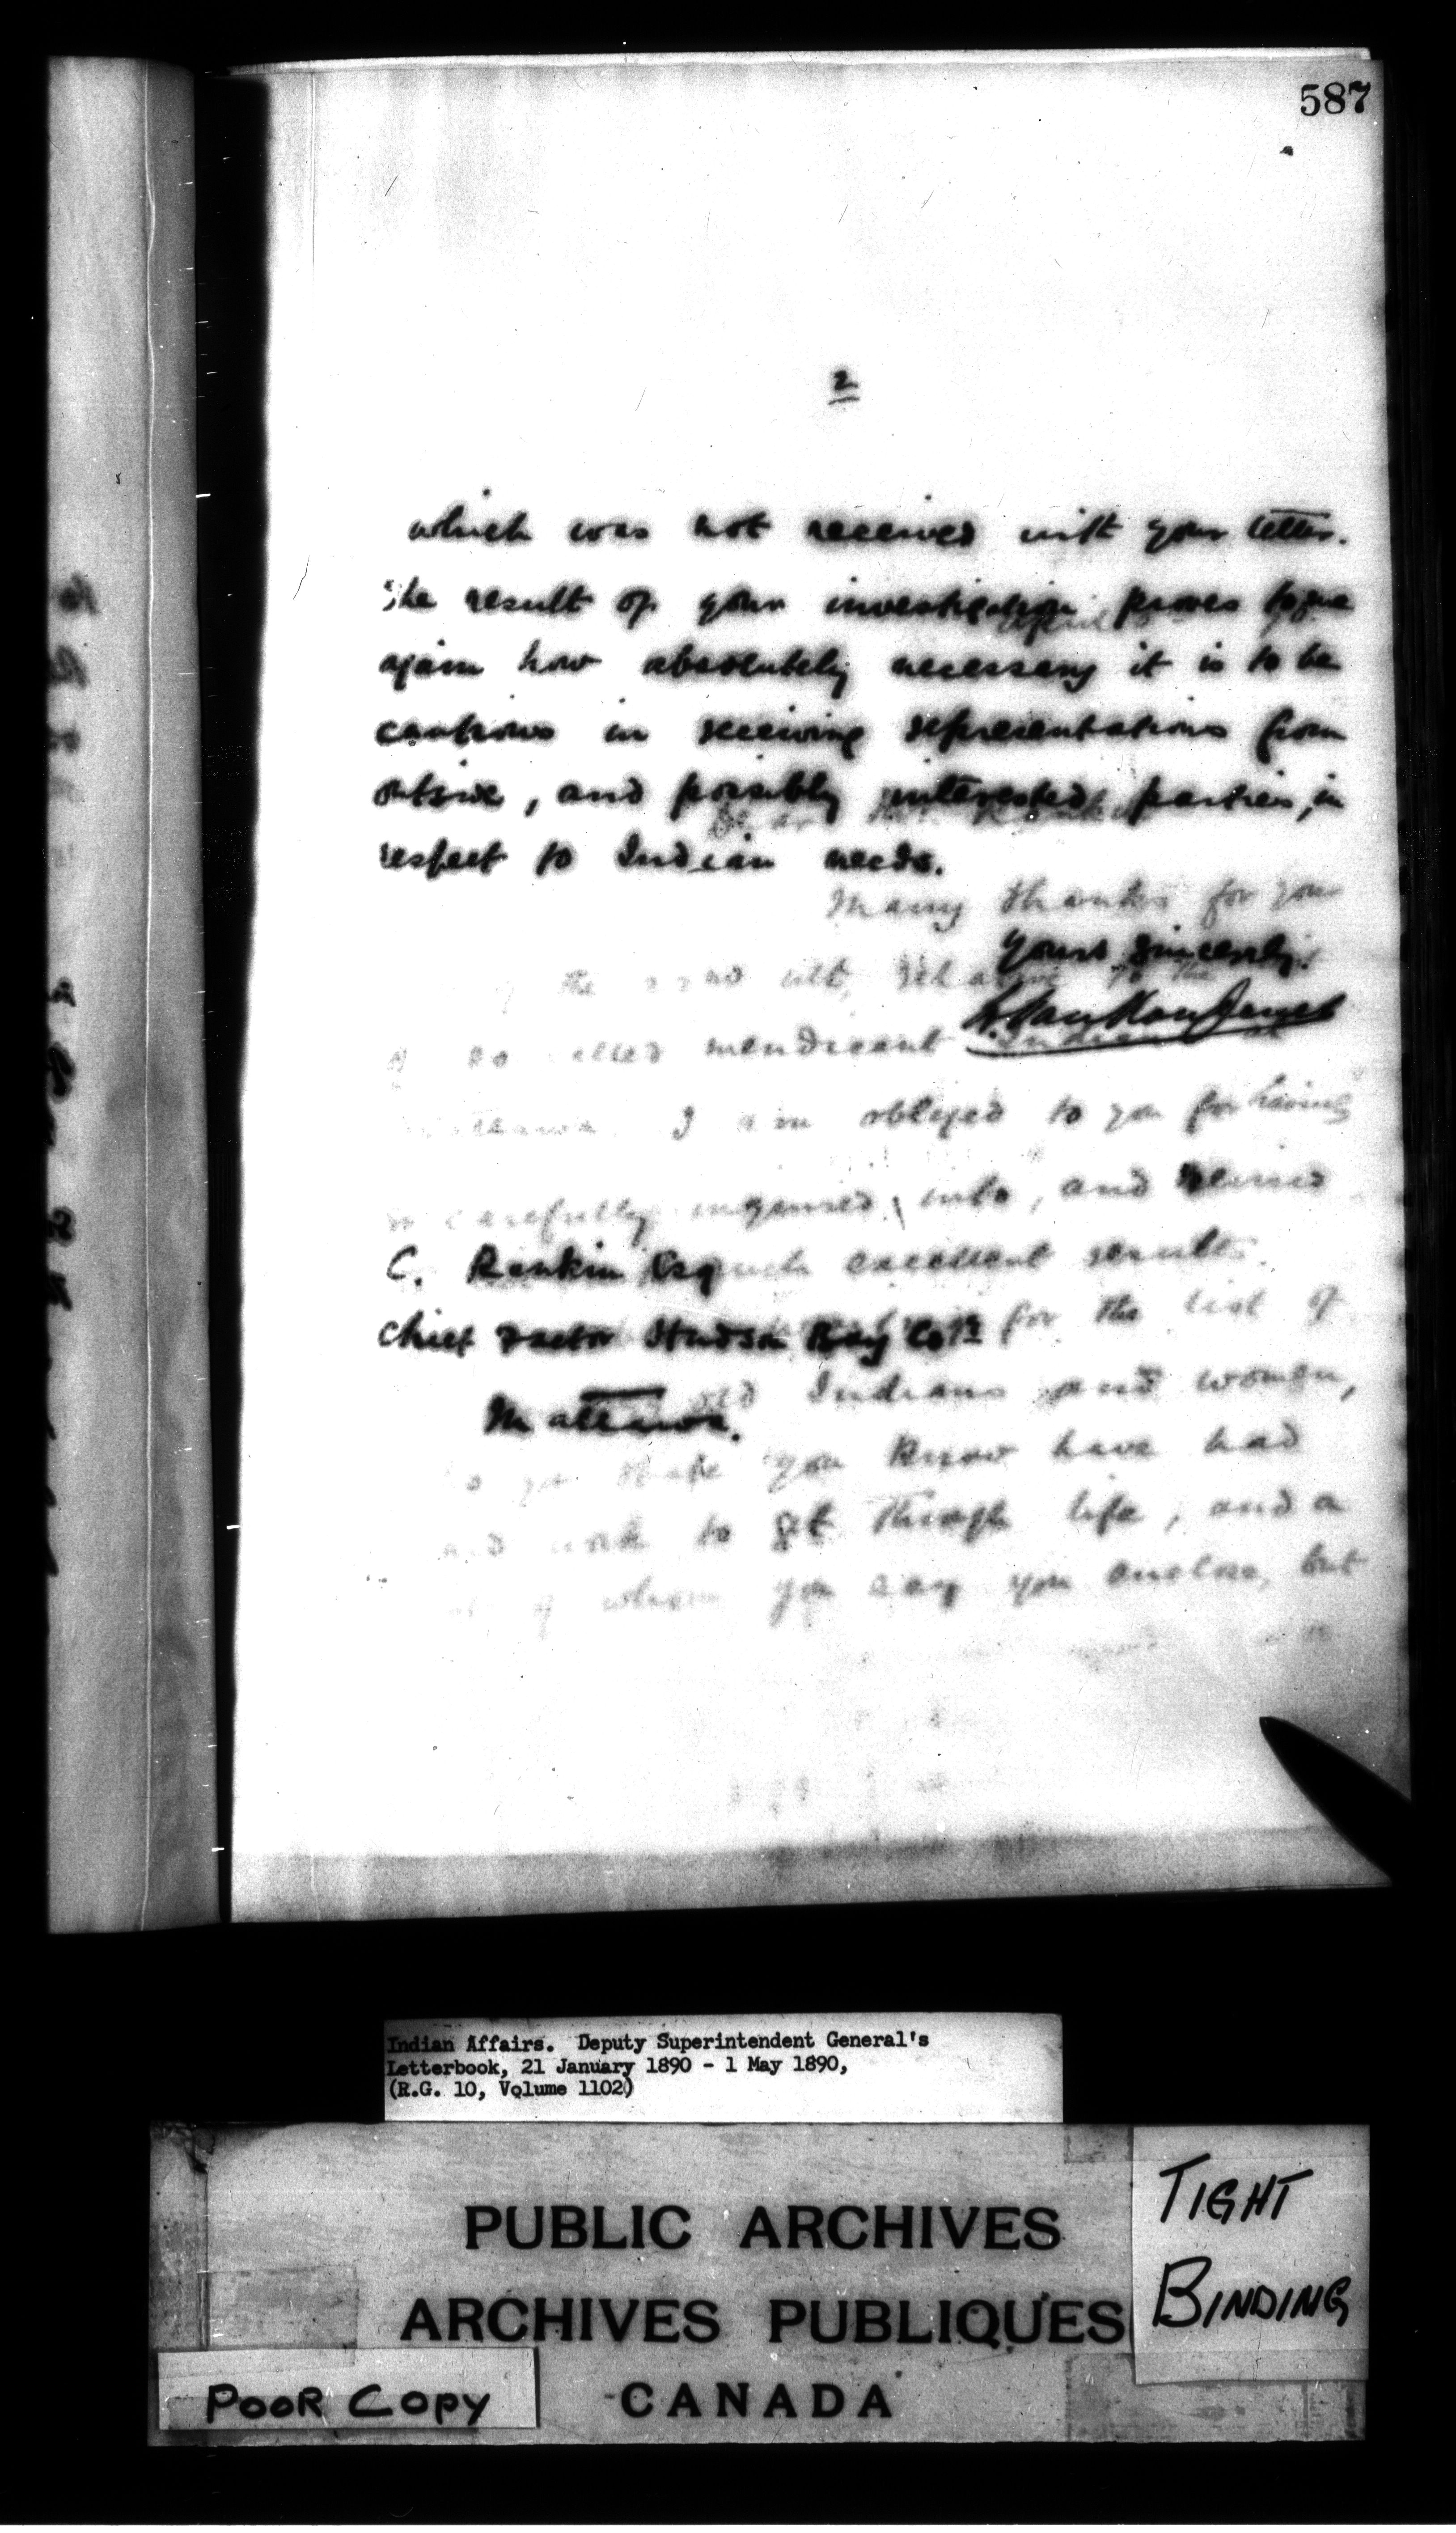 587
2
which was not received with your letter.
The result of your investigation proves to me
again how absolutely necessary it is to be
cautious in receiving representations from
outside, and possibly interested parties, in
respect to Indian needs.
Many thanks for your
Yours sincerely.
the ult,
L. VanKoughnet
so called mendicant Indians
I am obliged to you for having
so carefully inquired into, and
C. Rankin Esq
excellent results.
Chief Factor Hudson Bay Co'y
for the list of
old Indians and women,
Mattawa.
you know have had
hard work to get through life, and a
of whom you say you enclose, but
Indian Affairs. Deputy Superintendent General's
Letterbook, 21 January 1890 - 1 May 1890,
(R.G. 10, Volume 1102)
PUBLIC ARCHIVES
ARCHIVES PUBLIQUES
CANADA
TIGHT
BINDING
POOR COPY